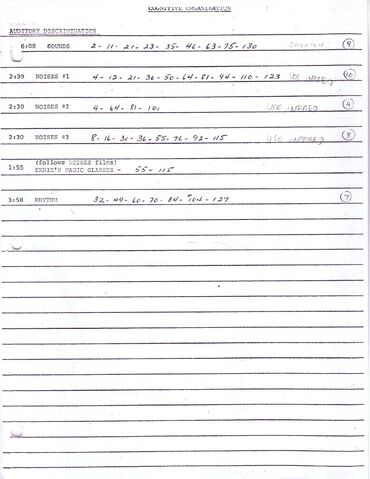 COGNITIVE ORGANIZATION
AUDITORY DISCRIMINATION
6:08 SOUNDS 2 - 11 - 21 - 23 - 35 - 46 - 63 - 75 - 130 9
2:39 NOISES #1 4 - 12 - 21 - 36 - 50 - 64 - 81 - 94 - 110 - 123 USE 10
2:30 NOISES #2 4 - 64 - 81 - 101 USE 4
2:30 NOISES #3 8 - 16 - 30 - 36 - 55 - 76 - 92 - 115 USE 8
(follows NOISES films)
1:55 ERNIE'S MAGIC GLASSES - 55 - 115
3:58 RHYTHM 32 - 49 - 60 - 70 - 84 - 104 - 127 7